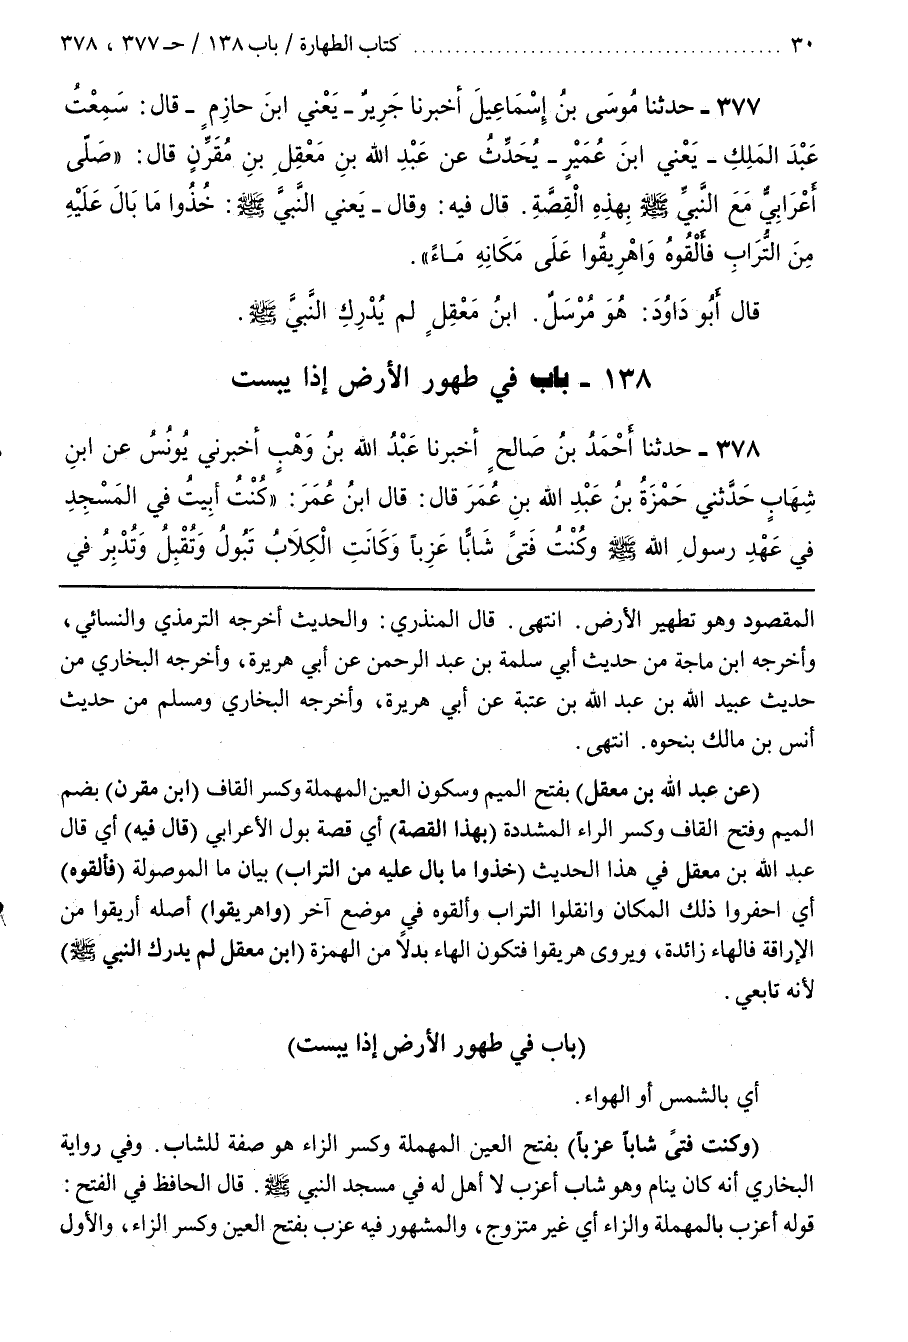 ٣٠ ........................................ كتاب الطهارة / باب ١٣٨ / حـ ٣٧٧ ، ٣٧٨
٣٧٧ ـ حدثنا مُوسَى بنُ إِسْمَاعِيلَ أخبرنا جَرِيرٌ ـ يَعْني ابنَ حازِمٍ ـ قال: سَمِعْتُ
عَبْدَ المَلِكِ ـ يَعْني ابنَ عُمَيْرٍ ـ يُحَدِّثُ عن عَبْدِ الله بنِ مَعْقِلِ بنِ مُقَرِّنٍ قال: «صَلَّى
أَعْرَابِيٌّ مَعَ النَّبيِّ ﷺ بِهذِهِ الْقِصَّةِ. قال فيه: وقال ـ يَعني النَّبيَّ ﷺ: خُذُوا مَا بَالَ عَلَيْهِ
مِنَ التُّرَابِ فَأَلْقُوهُ وَاهْرِيقُوا عَلَى مَكَانِهِ مَـاءً».
قال أَبُو دَاوُدَ: هُوَ مُرْسَلٌ. ابنُ مَعْقِلٍ لم يُدْرِكِ النَّبيَّ ﷺ.
١٣٨ ـ باب في طهور الأرض إذا يبست
٣٧٨ ـ حدثنا أَحْمَدُ بنُ صَالحٍ أخبرنا عَبْدُ الله بنُ وَهْبٍ أخبرني يُونُسُ عن ابنِ
شِهَابٍ حَدَّثني حَمْزَةُ بنُ عَبْدِ الله بنِ عُمَرَ قال: قال ابنُ عُمَرَ: «كُنْتُ أبيتُ في المَسْجِدِ
في عَهْدِ رسولِ الله ﷺ وكُنْتُ فَتىً شَابًّا عَزِباً وَكَانَتِ الْكِلَابُ تَبُولُ وَتُقْبِلُ وَتُدْبِرُ في
المقصود وهو تطهير الأرض. انتهى. قال المنذري: والحديث أخرجه الترمذي والنسائي،
وأخرجه ابن ماجة من حديث أبي سلمة بن عبد الرحمن عن أبي هريرة، وأخرجه البخاري من
حديث عبيد الله بن عبد الله بن عتبة عن أبي هريرة، وأخرجه البخاري ومسلم من حديث
أنس بن مالك بنحوه. انتهى.
(عن عبد الله بن معقل) بفتح الميم وسكون العين المهملة وكسر القاف (ابن مقرن) بضم
الميم وفتح القاف وكسر الراء المشددة (بهذا القصة) أي قصة بول الأعرابي (قال فيه) أي قال
عبد الله بن معقل في هذا الحديث (خذوا ما بال عليه من التراب) بيان ما الموصولة (فألقوه)
أي احفروا ذلك المكان وانقلوا التراب وألقوه في موضع آخر (واهريقوا) أصله أريقوا من
الإراقة فالهاء زائدة، ويروى هريقوا فتكون الهاء بدلاً من الهمزة (ابن معقل لم يدرك النبي ﷺ)
لأنه تابعي.
(باب في طهور الأرض إذا يبست)
أي بالشمس أو الهواء.
(وكنت فتىً شاباً عزباً) بفتح العين المهملة وكسر الزاء هو صفة للشاب. وفي رواية
البخاري أنه كان ينام وهو شاب أعزب لا أهل له في مسجد النبي ﷺ. قال الحافظ في الفتح:
قوله أعزب بالمهملة والزاء أي غير متزوج، والمشهور فيه عزب بفتح العين وكسر الزاء، والأول